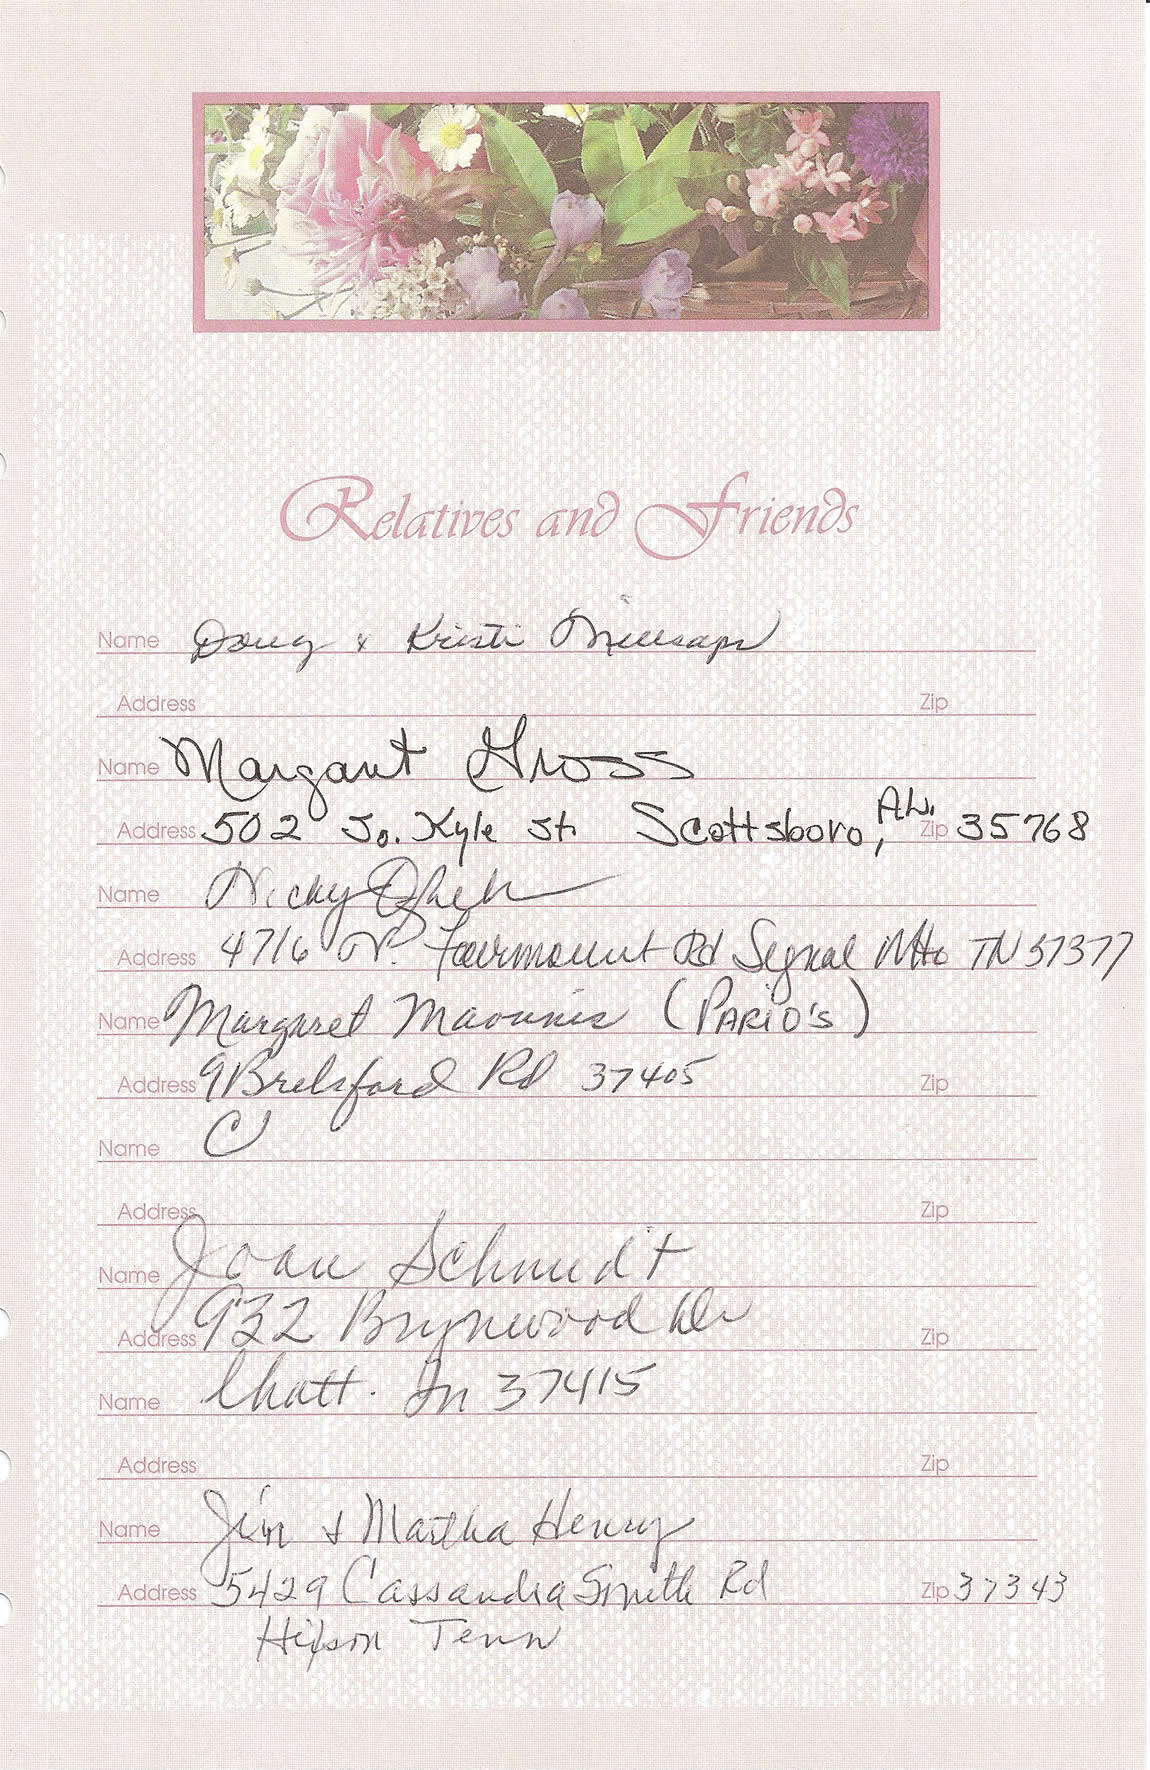 Relatives and Friends
Name Doug & Kristi Millsaps
Address Zip
Name Margaret Gross
Address 502 So. Kyle St. Scottsboro, AL. Zip 35768
Name Nicky
Address 4716 N. Fairmount Rd Signal Mtn TN 37377
Name Margaret (PARIO'S)
Address 9 Brelsford Rd 37405 Zip
Name C
Address Zip
Name Joan Schmidt
Address 932 Brynwood Dr Zip
Name Chatt. Tn 37415
Address Zip
Name Jim & Martha Henry
Address 5429 Cassandra Smith Rd Zip 37343
Hixson Tenn